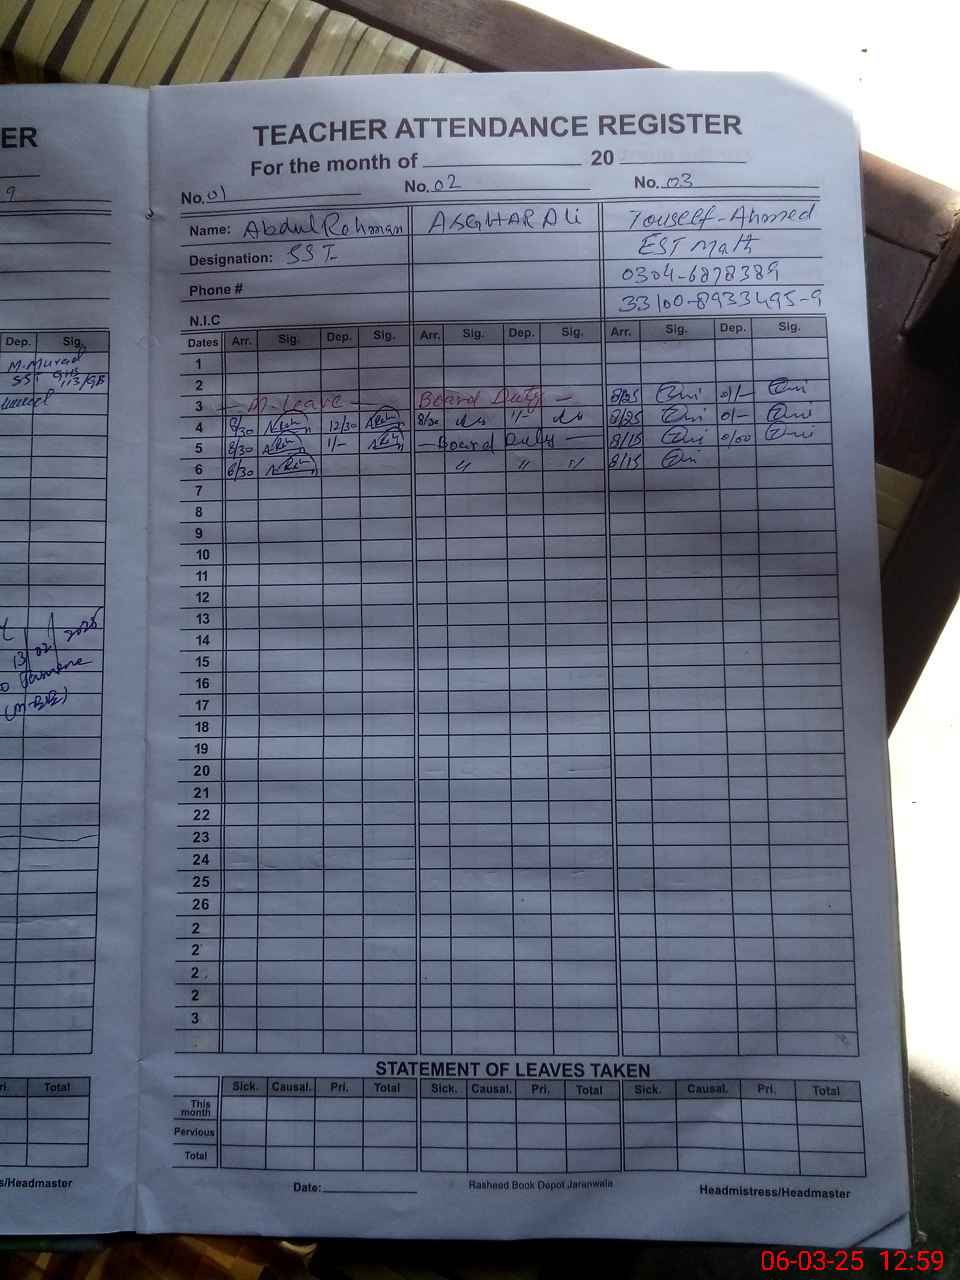 ER
9
Dep. Sig.
M. Murad
SST GHS
113/GB
13/02/2025
(M-BB)
ri. Total
s/Headmaster
TEACHER ATTENDANCE REGISTER
For the month of 20
No. 01 No. 02 No. 03
Name: Abdul Rehman ASGHAR Ali Youself-Ahmed
Designation: SST EST Math
Phone # 0304-6878389
33100-8933495-9
N.I.C
Dates Arr. Sig. Dep. Sig. Arr. Sig. Dep. Sig. Arr. Sig. Dep. Sig.
1
2
3 M-Leave Board Duty - 8/25 01/-
4 8/30 12/30 8/30 1/- 8/25 01-
5 8/30 1/- - Board Duty - 8/15 0/00
6 8/30 " " " 8/15
7
8
9
10
11
12
13
14
15
16
17
18
19
20
21
22
23
24
25
26
2
2
2
2
3
STATEMENT OF LEAVES TAKEN
Sick. Causal. Pri. Total Sick. Causal. Pri. Total Sick. Causal. Pri. Total
This
month
Pervious
Total
Date: Rasheed Book Depot Jaranwala Headmistress/Headmaster
06-03-25 12:59